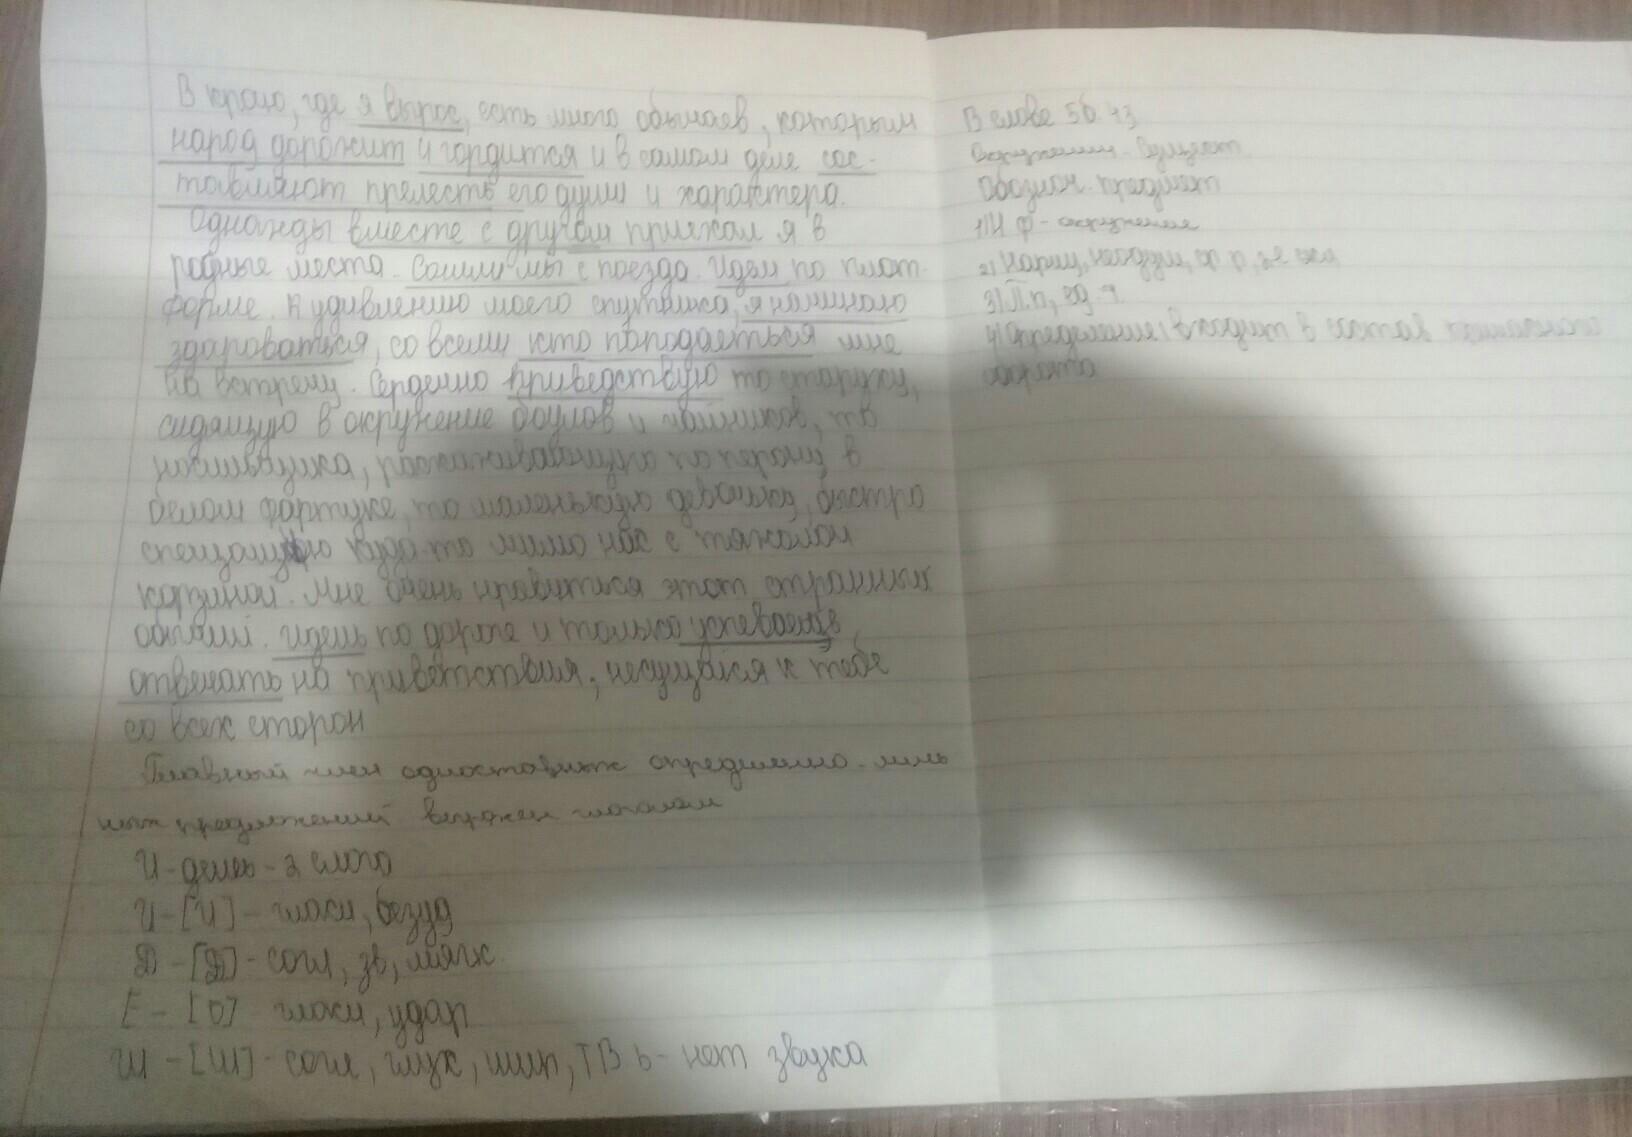 В краю, где я вырос, есть много обычаев, которым
народ дорожит и гордится и в самом деле сос-
тавляют прелесть его души и характера.
Однажды вместе с другом приехал я в
родные места. Сошли мы с поезда. Идем по плат-
форме. К удивлению моего спутника, я начинаю
здароваться, со всеми кто поподаеться мне
на встречу. Сердечно приведствую то старуху,
сидящую в окружение баулов и чайников, то
носильщика, расхаживающего по перону в
белом фартуке, то маленькую девочку, быстро
спешащую куда-то мимо нас с тяжолой
корзиной. Мне очень нравиться этот странных
обычий. Идешь по дороге и только успеваешь,
отвечать на приветствия, несущийся к тебе
со всех сторон
Главный член односоставных определенно-лич
ных предложений выражен глаголом
И-дешь - 2 слога
И - [И] - гласн, безуд
Д - [Д] - согл, зв, мягк.
Е - [О] гласн, удар
Ш - [Ш] - согл, глух, шип, ТВ ь - нет звука
В слове 5б. 4з
Окружении - Сущест
Обознач. предмет
1) Н ф - окружение
2) Нариц, неодуш, ср р, 2-е скл
3) П.п, ед. ч.
4) Определение, входит в состав
оборота